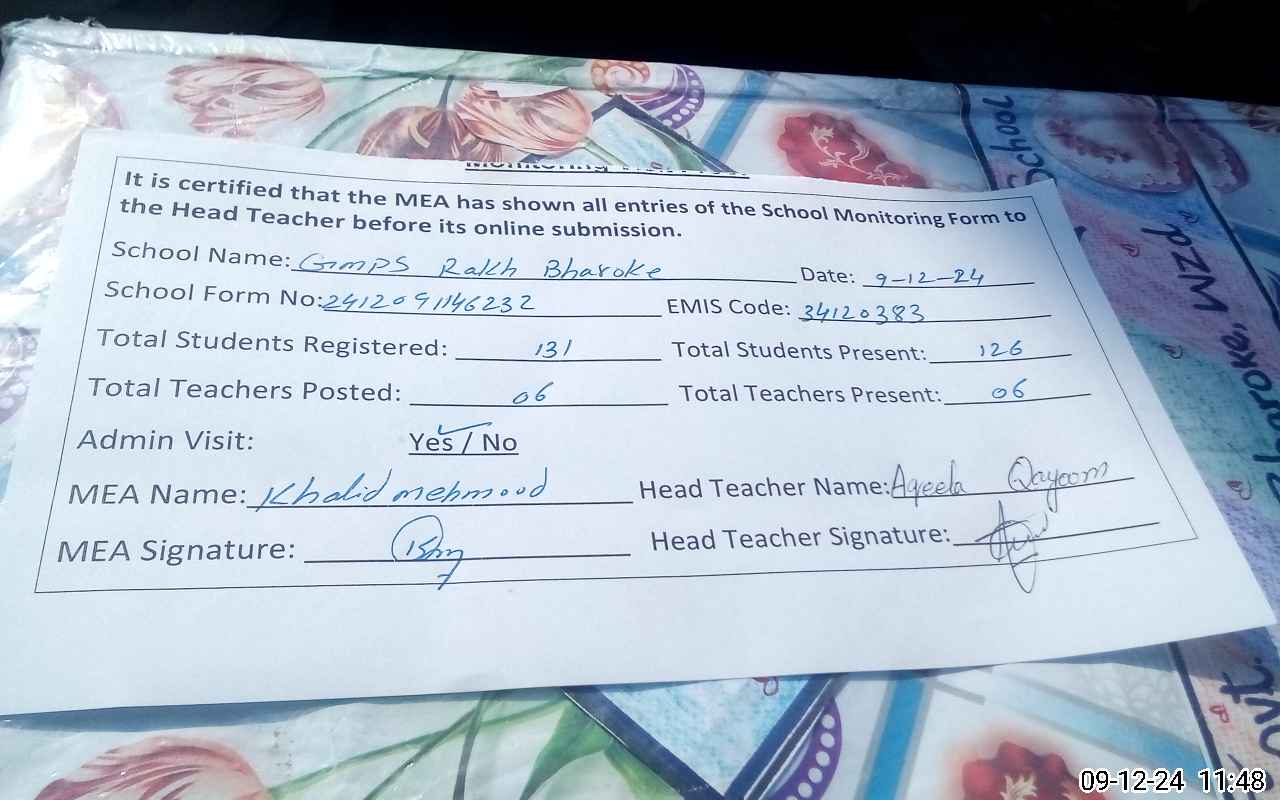 It is certified that the MEA has shown all entries of the School Monitoring Form to
the Head Teacher before its online submission.
School Name: GMPS Rakh Bharoke Date: 9-12-24
School Form No: 2412091146232 EMIS Code: 34120383
Total Students Registered: 131 Total Students Present: 126
Total Teachers Posted: 06 Total Teachers Present: 06
Admin Visit: Yes / No
MEA Name: Khalid mehmood Head Teacher Name: Aqeela Qayoom
MEA Signature: Head Teacher Signature:
School
Bharoke, WZd
Govt.
09-12-24 11:48